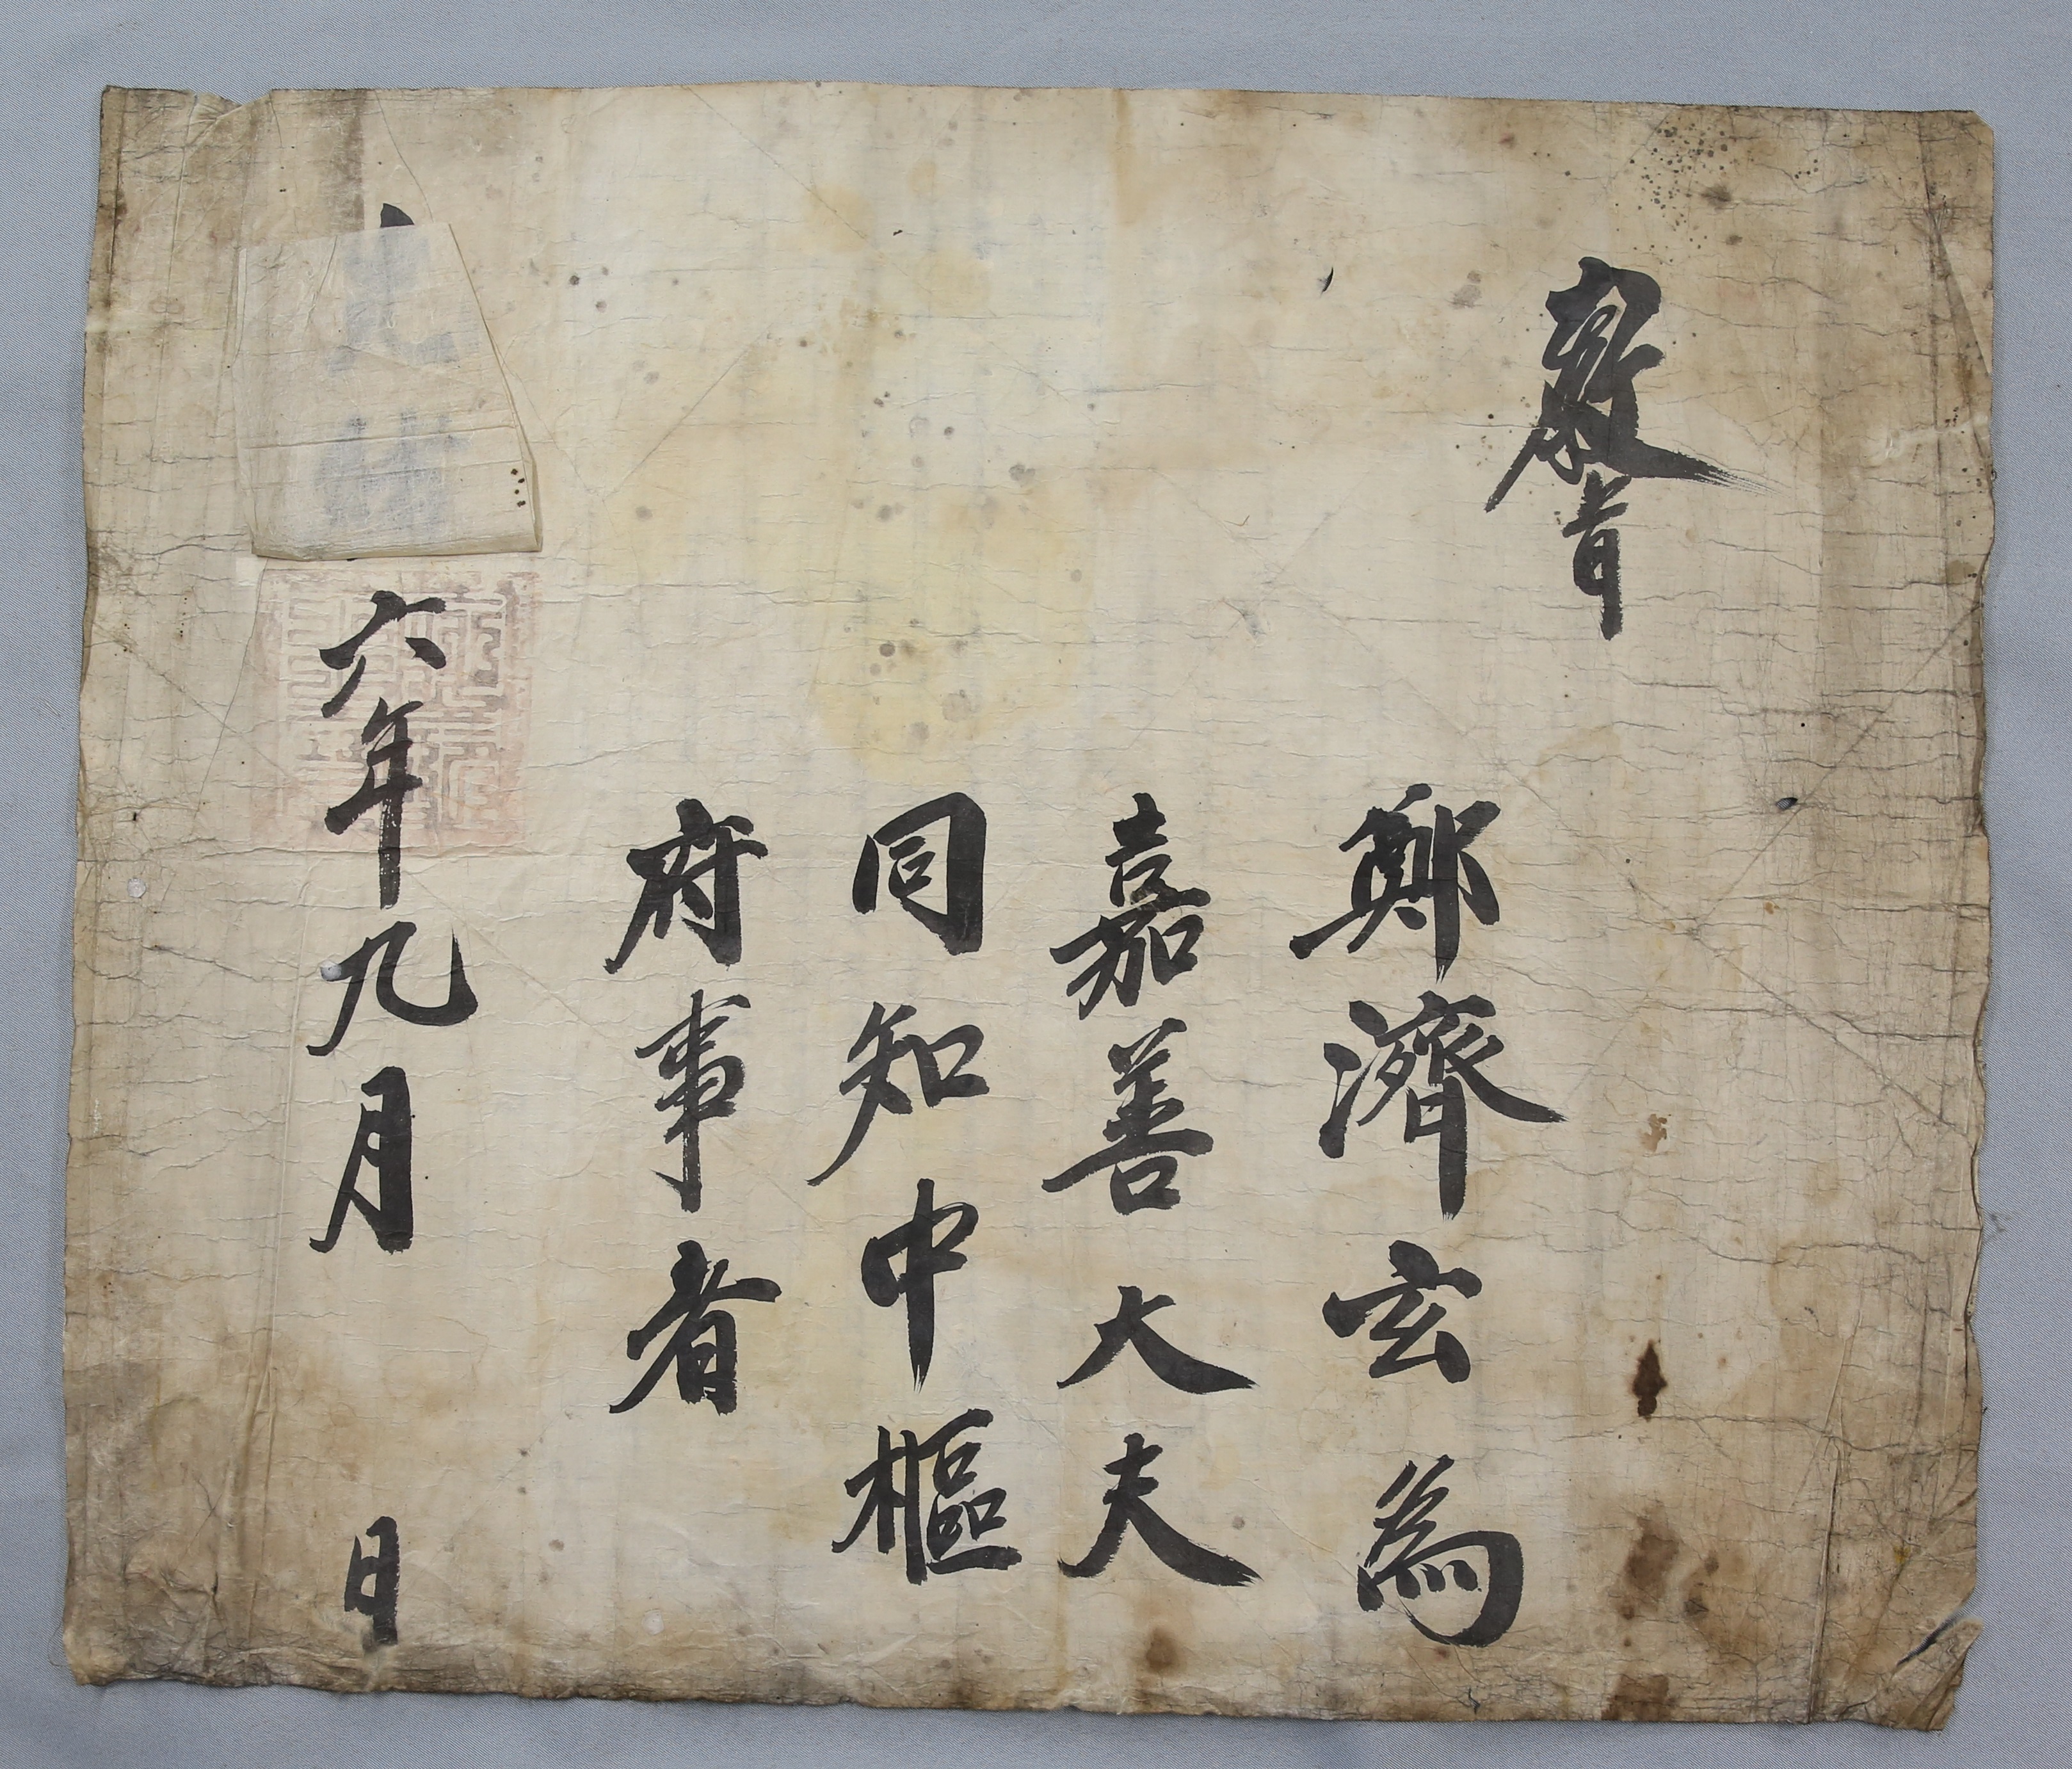 敎旨
鄭濟玄為
嘉善大夫
同知中樞
府事者
光緖六年九月 日